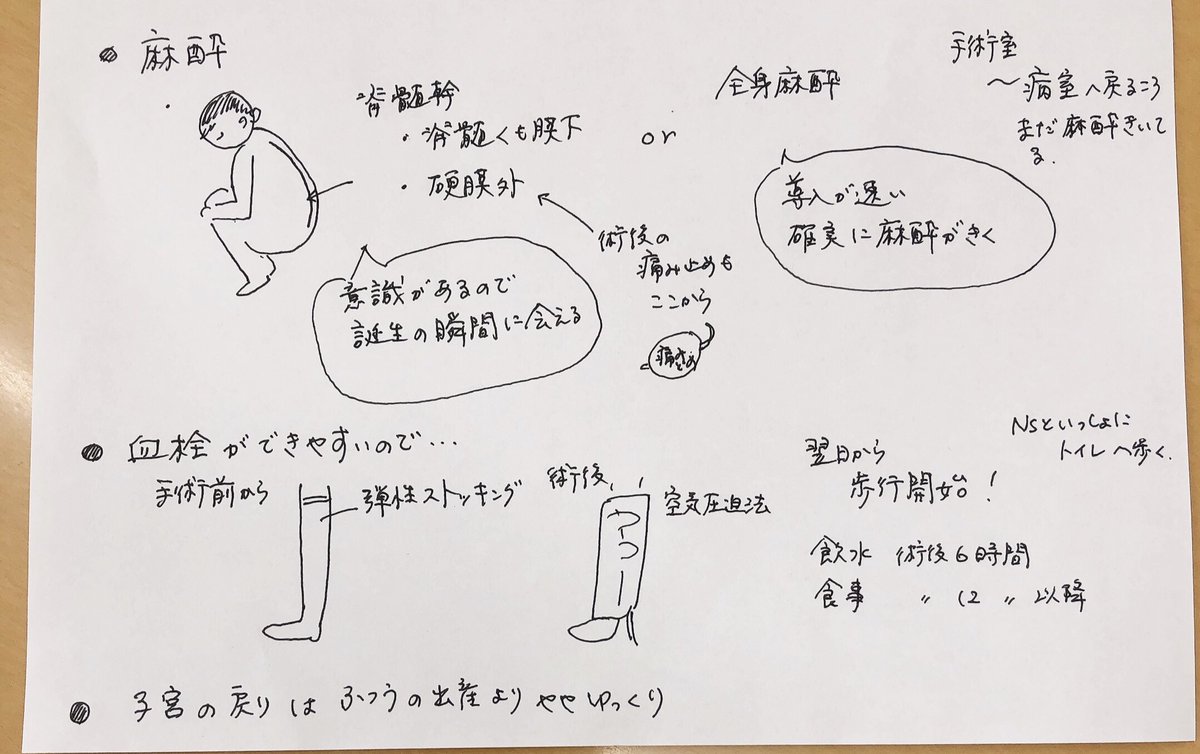 麻酔
脊髄幹
・脊髄くも膜下
・硬膜外
or
全身麻酔
手術室
〜病室へ戻るころ
まだ麻酔きいて
る.
意識があるので
誕生の瞬間に会える
術後の
痛み止めも
ここから
導入が速い
確実に麻酔がきく
血栓ができやすいので…
手術前から
弾性ストッキング
術後
空気圧迫法
翌日から
歩行開始!
Nsといっしょに
トイレへ歩く.
飲水 術後6時間
食事 〃 12 〃 以降
子宮の戻りはふつうの出産よりややゆっくり